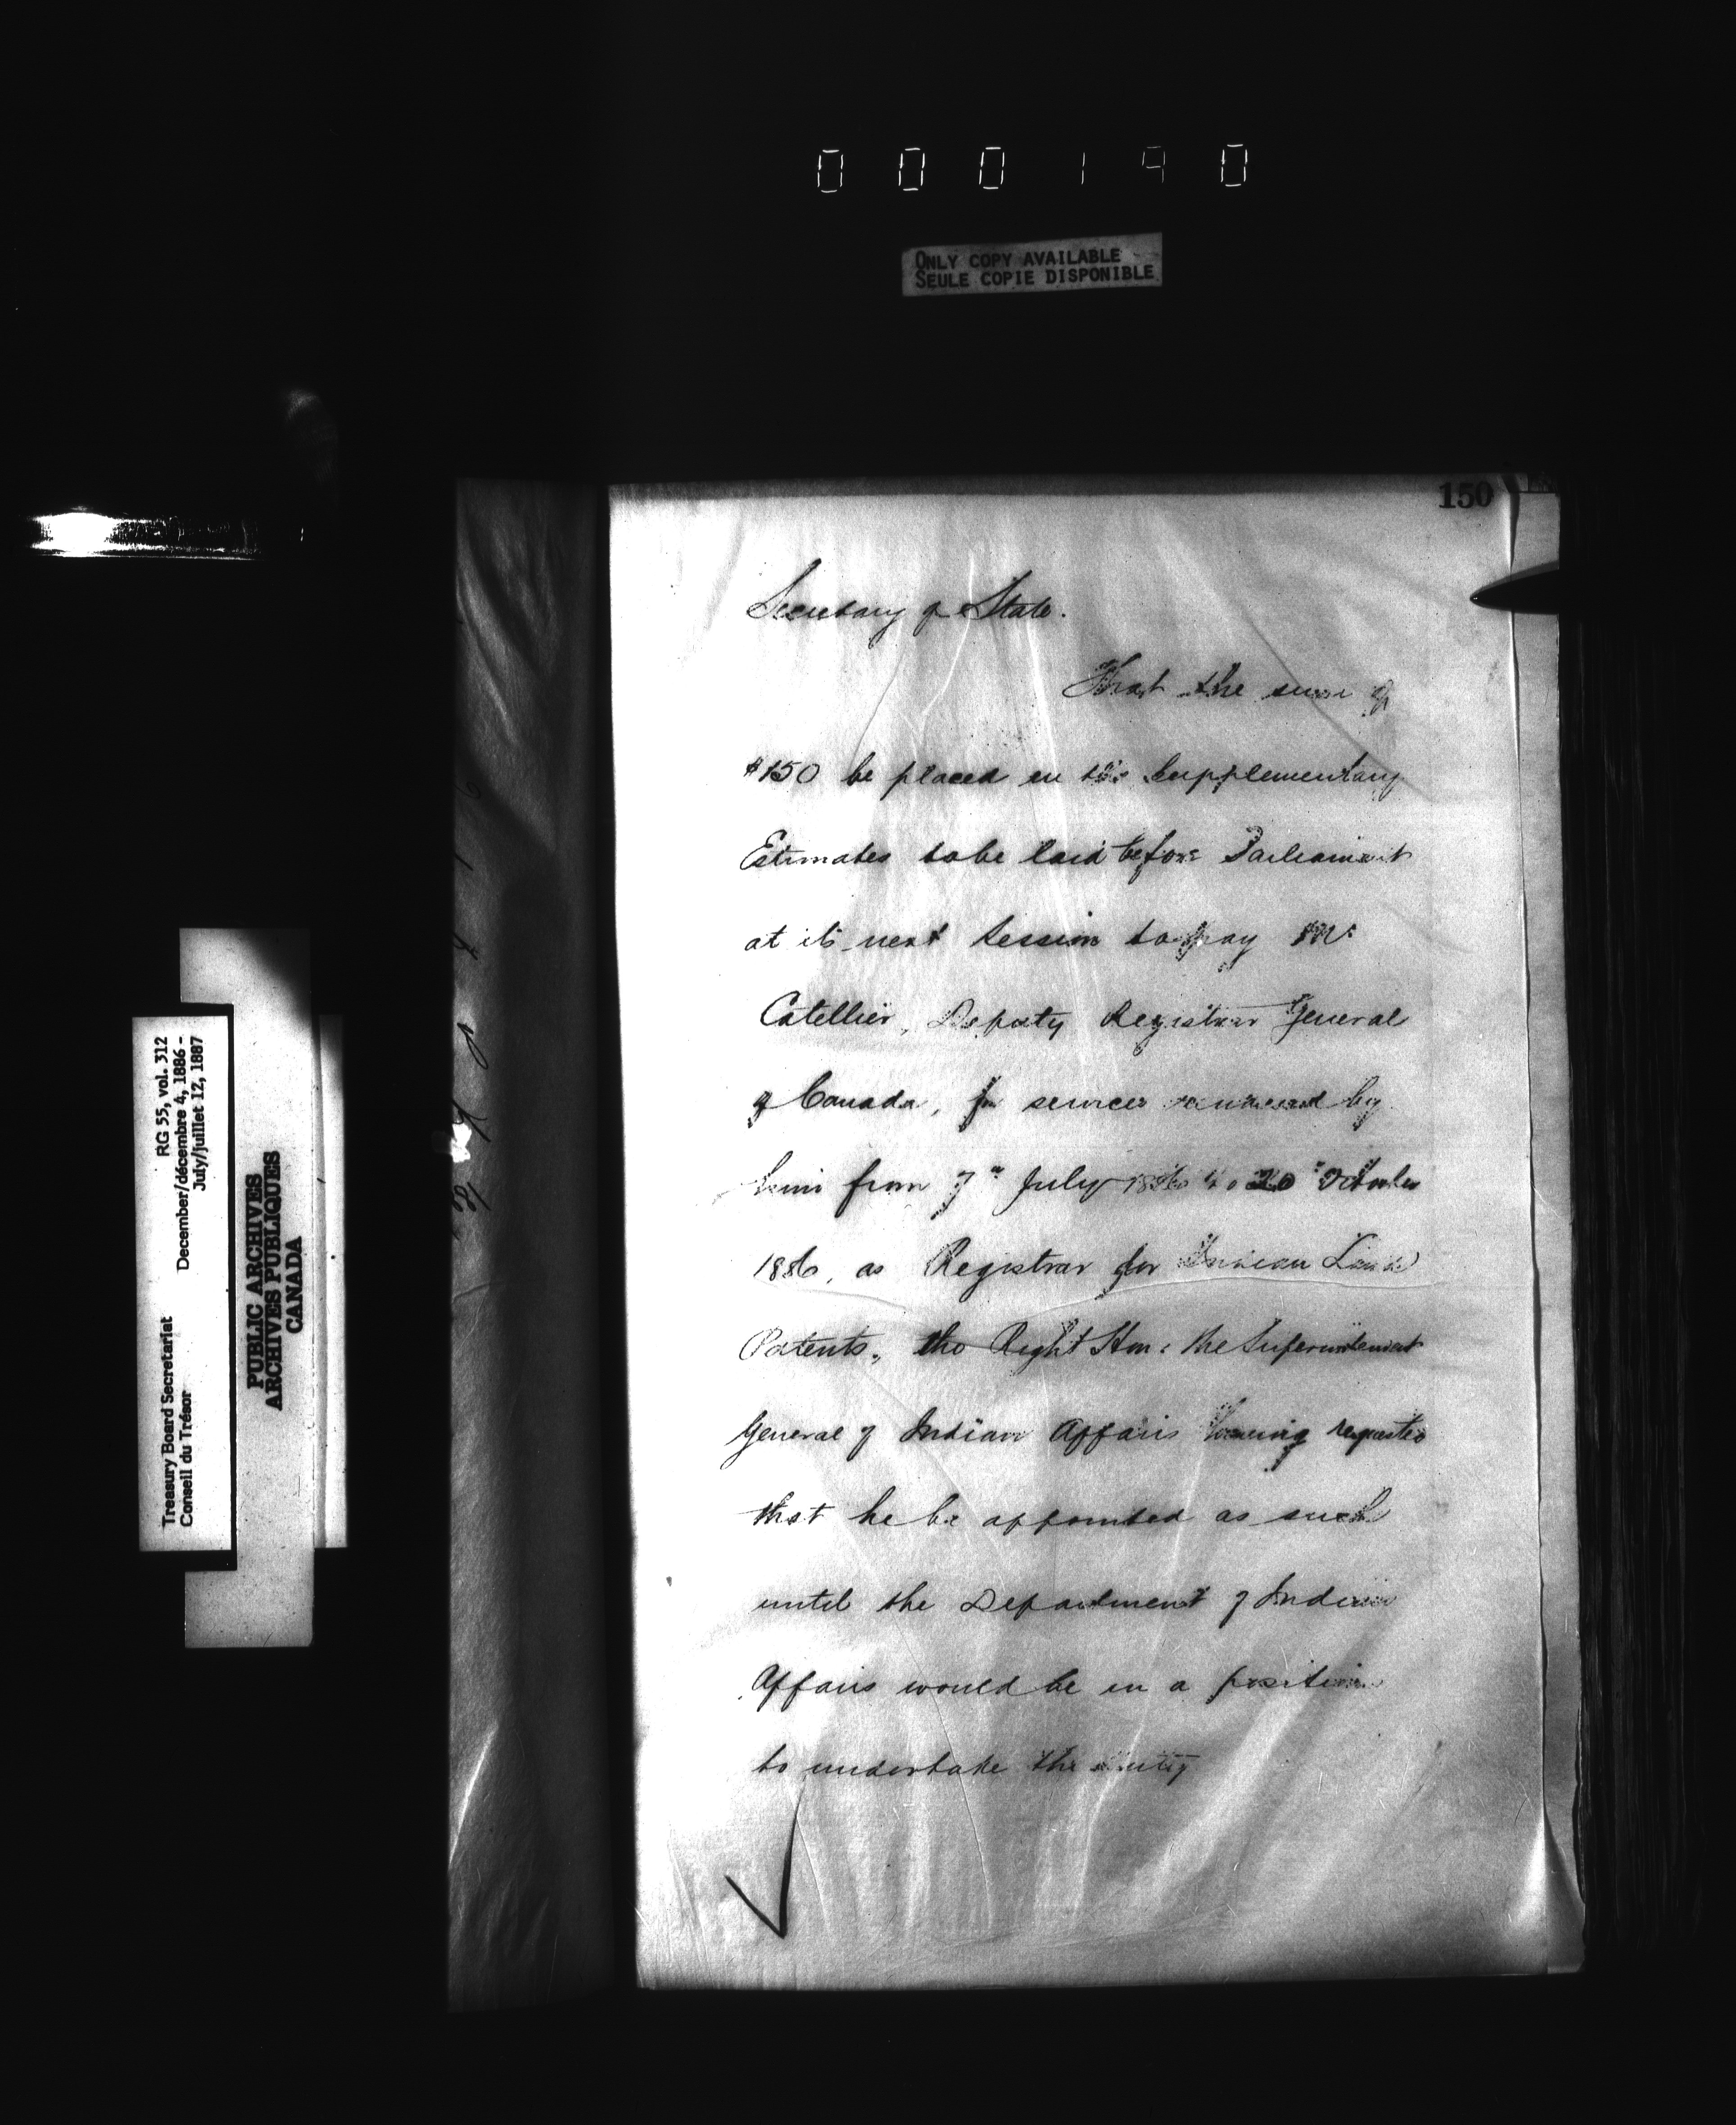 000190
ONLY COPY AVAILABLE
SEULE COPIE DISPONIBLE
150
Secretary of State.
That the sum of
$150 be placed in the Supplementary
Estimates to be laid before Parliament
at its next Session to pay Mr
Catellier, Deputy Registrar General
of Canada, for services rendered by
him from 7th July 1886 to 20th October
1886, as Registrar for Indian Land
Patents, the Right Hon: the Superintendent
General of Indian Affairs having requested
that he be appointed as such
until the Department of Indian
Affairs would be in a position
to undertake the duty
Treasury Board Secretariat RG 55, vol. 312
Conseil du Trésor December/décembre 4, 1886 -
July/juillet 12, 1887
PUBLIC ARCHIVES
ARCHIVES PUBLIQUES
CANADA